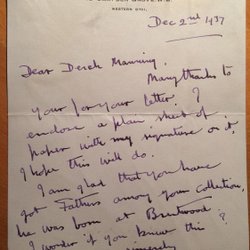 WESTERN 0701.
Dec 2nd 1937
Dear Derek Manning,
Many thanks to
you for your letter. I
enclose a plain sheet of
paper with my signature on it,
I hope this will do.
I am glad that you have
got Fathers among your collection,
he was born at Brentwood.
I wonder if you knew this ?
sincerely